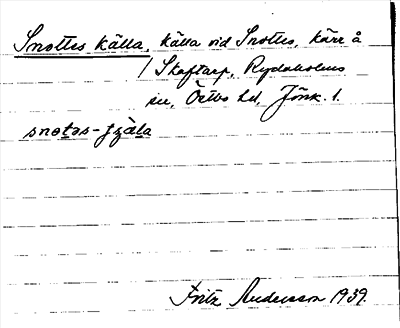 Snottes källa, källa vid Snottes, kärr å
/ Skaftarp, Rydaholms
sn, Östbo hd, Jönk. l.
snotəs-ʃʒäla
Fritz Andersson 1939.